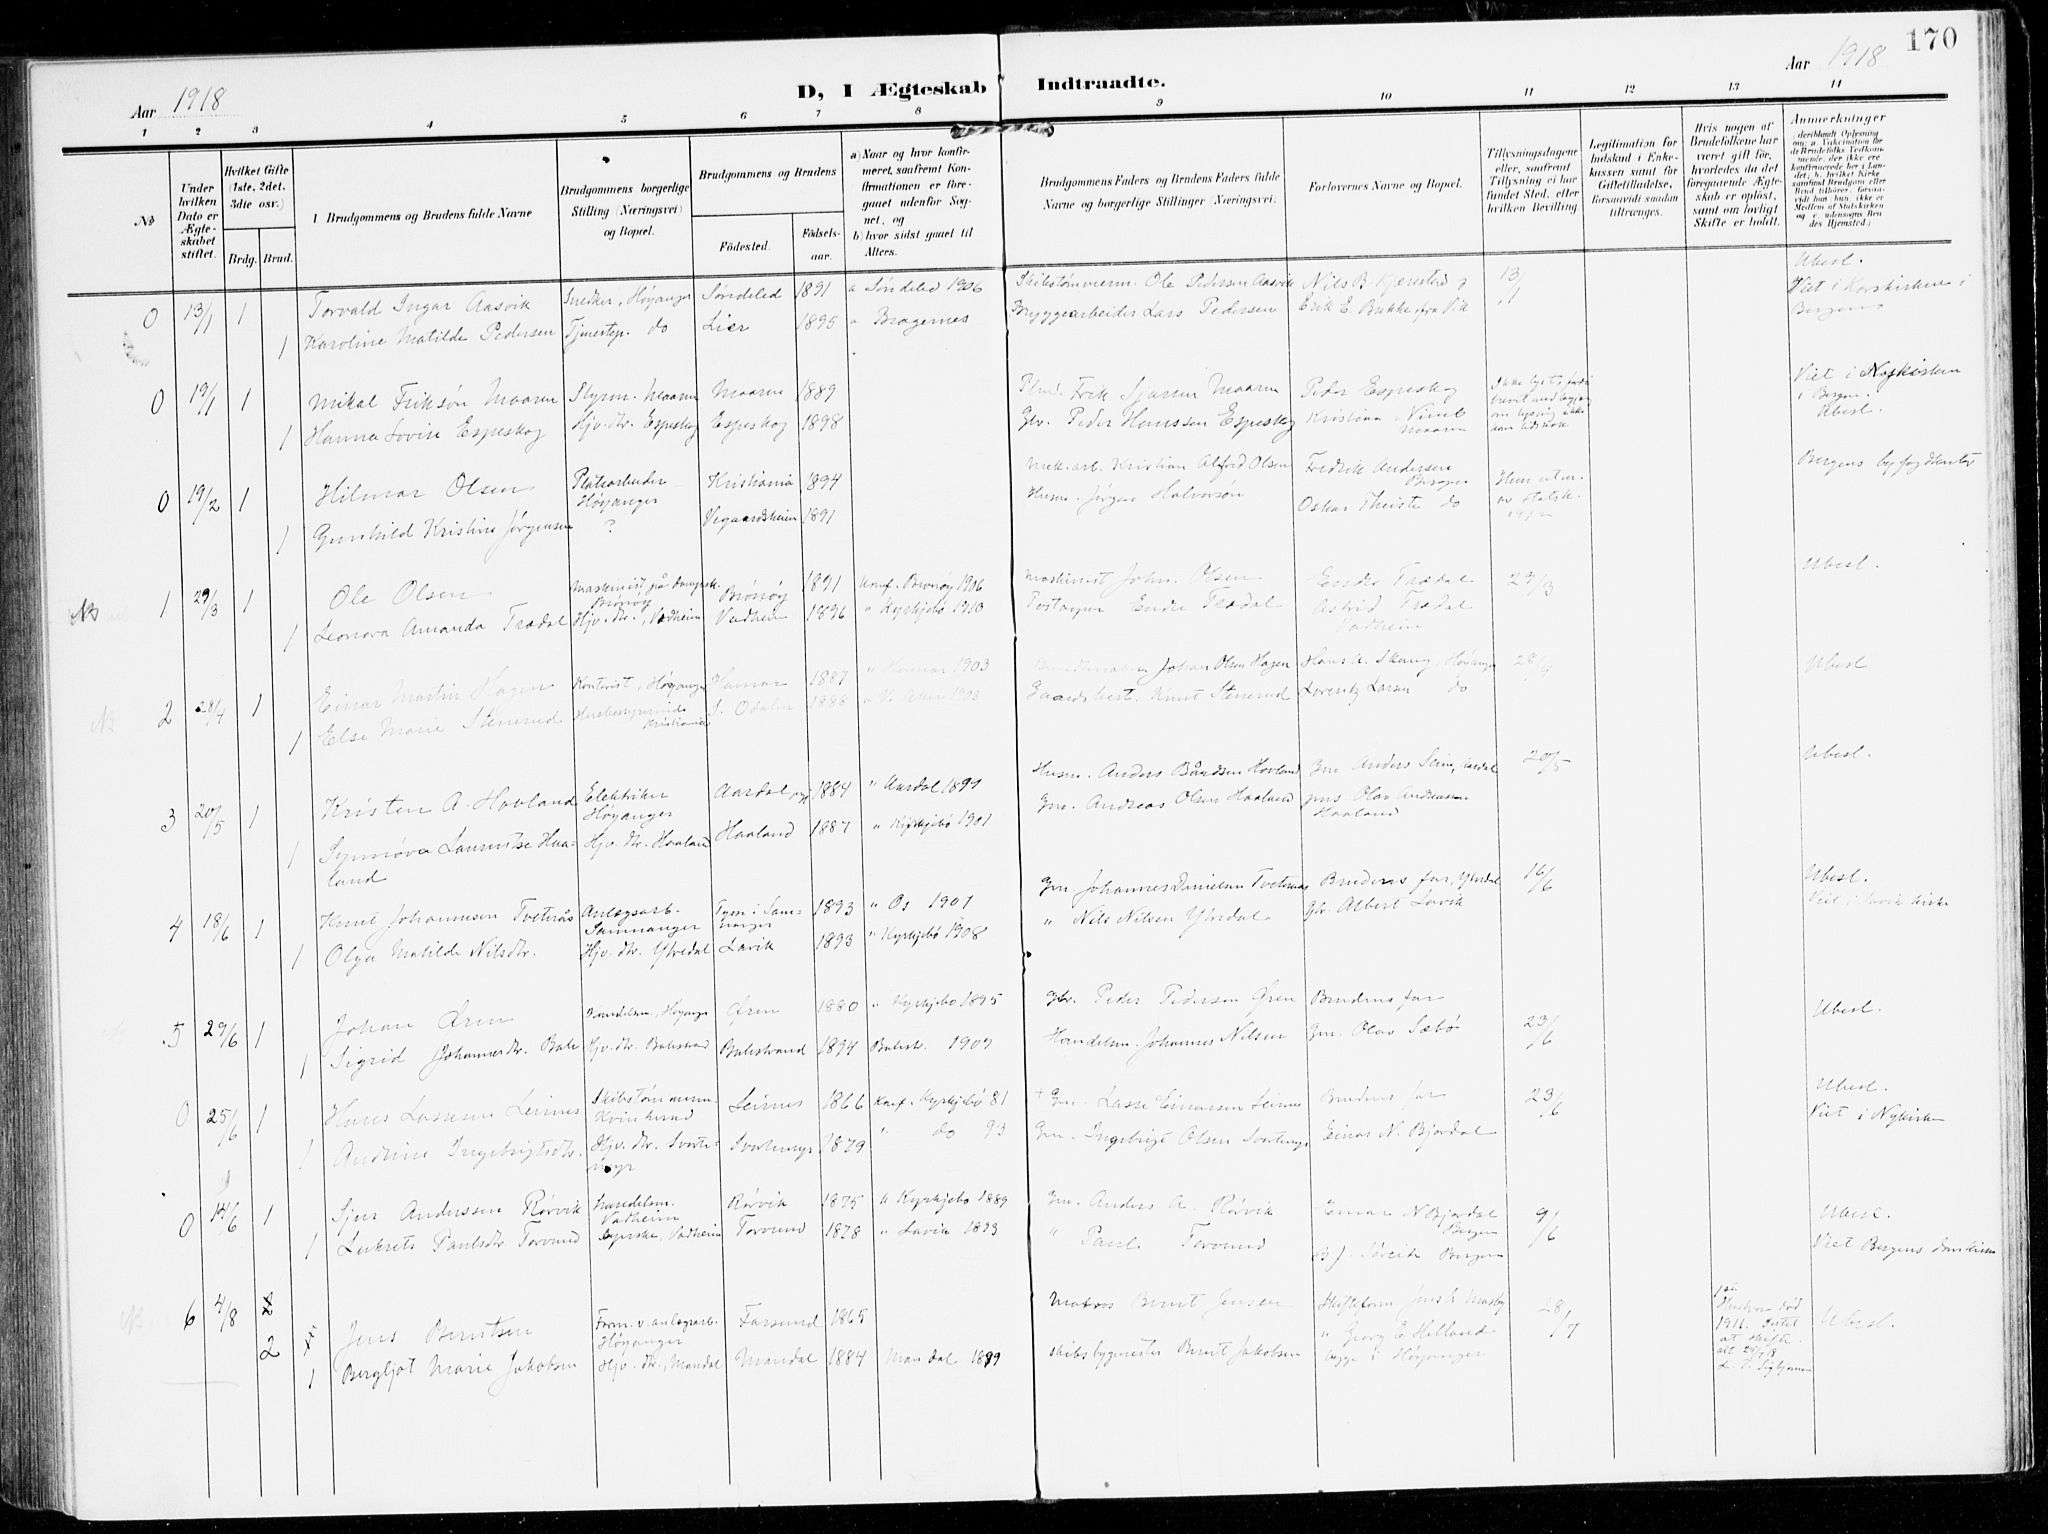 170
Aar 1918
D, I Ægteskab Indtraadte.
Aar 1918
1 2 3 4 5 6 7 8 9 10 11 12 13 14
No
Under hvilken Dato er Ægteskabet stiftet.
Hvilket Gifte (1ste, 2det, 3die osv.)
Brdg. Brud.
Brudgommens og Brudens fulde Navne
Brudgommens borgerlige Stilling (Næringsvei) og Bopæl.
Brudgommens og Brudens
Födested.
Födselsaar.
a) Naar og hvor konfirmeret, saafremt Konfirmationen er foregaaet udenfor Sognet, og
b) hvor sidst gaaet til Alters.
Brudgommens Faders og Brudens Faders fulde Navne og borgerlige Stillinger (Næringsvei).
Forlovernes Navne og Bopæl.
Tillysningsdagene eller, saafremt Tillysning ei har fundet Sted, efter hvilken Bevilling.
Legitimation for Indskud i Enkekassen samt for Giftetilladelse, forsaavidt saadan tiltrænges.
Hvis nogen af Brudefolkene har været gift för, hvorledes da det foregaaende Ægteskab er oplöst, samt om lovligt Skifte er holdt.
Anmærkninger
0 13/1 1 Torvald Ingar Aasvik Snedker, Høyanger Søndeled 1891 a Søndeled 1906 Skibstømmerm. Ole Pedersen Aasvik Nils B. Kjørstad og 13/1 Ubesl.
1 Karoline Matilde Pedersen Tjenestep. do Lier 1895 Bragernes Bryggearbeider Lars Pedersen Erik E. Brekke, fra Vik Viet i Korskirken i Bergen
0 19/1 1 Mikal Eriksøn Maaren Styrm. Maaren Maaren 1889 Erik Sjursen Maaren Peder Espeskog Viet i Nykirken i Bergen.
1 Hanna Lovise Espeskog Hjv. dtr. Espeskog Espeskog 1898 Gbr. Peder Hanssen Espeskog Kristina Maaren Ubesl.
0 19/2 1 Hilmar Olsen Høyanger Kristiania 1894 Mek. arb. Kristian Alfred Olsen Fredrik Andersen Bergen Bergens byfogdkontor
1 Gunhild Kristine Jørgensen ? Vegaardsheien 1891 Husm. Jørgen Halvorsøn Oskar Theiste do
NB 1 29/3 1 Ole Olsen Maskinist på dampsk. Brønøy Brønøy 1891 konf. Brønøy 1906 Maskinist John. Olsen Endre Trædal 29/3 Ubesl.
1 Leonora Amanda Trædal Hjv. dtr., Vadheim Vadheim 1896 " Kyrkjebø 1910 Endre Trædal Astrid Trædal Vadheim
NB 2 28/4 1 Einar Martin Hagen Kontorist, Høyanger Hamar 1887 " Hamar 1903 Johan Olsen Hagen Hans A. Skaug, Høyanger 28/4 Ubesl
1 Else Marie Stenerud Kristiania S. Odalen 1888 " V. Aker 1903 Gaardsbest. Knut Stenerud Lorentz Larsen do
3 20/5 1 Kristen A. Hovland Elektriker Høyanger Aardal 1884 " Aardal 1899 Husm. Anders Bårdsen Hovland Gm. Anders Seim, Aardal 20/5 Ubesl.
1 Synnøva Laurentse Haaland Hjv. dtr. Haaland Haaland 1887 " Kyrkjebø 1901 Gm. Andreas Olsen Haaland Olav Andreassen Haaland
4 18/6 1 Knut Johannesen Tveterås Anlægsarb. Samnanger 1893 " Os 1907 Gm. Johannes Danielsen Tveterås Brudens far, Ytredal 16/6 Ubesl.
1 Olga Matilde Nilsdtr. Hjv. dtr. Ytredal Lavik 1893 " Kyrkjebø 1908 " Nils Nilsen Ytredal Gbr. Albert Lavik Viet i Lavik kirke
5 29/6 1 Johan Øren Handelsm., Høyanger Øren 1880 " Kyrkjebø 1895 Gbr. Peder Pedersen Øren Brudens far 23/6 Ubesl.
1 Sigrid Johannesdtr. Bale Hjv. dtr. Balestrand Balestrand 1894 Balestr. 1909 Handelsm. Johannes Nilsen Gm. Olav Sæbø
0 25/6 1 Hans Lassesen Leirnes Skibstømmerm. Leirnes 1866 Konf. Kyrkjebø 81 + Gm. Lasse Einarsen Leirnes Brudens far 23/6 Ubesl.
1 Andrine Ingebrigtsdtr. Hjv. dtr. Svartemyr Svartemyr 1879 " do 93 Gm. Ingebrigt Olsen Svartemyr Einar N. Bjordal Viet i Nykirken
0 14/6 1 Sjur Anderssen Rørvik Handelsm. Vadheim Rørvik 1875 " Kyrkjebø 1889 Gm. Anders A. Rørvik Einar N. Bjordal Bergen 9/6 Ubesl.
1 Lukrets Paulsdtr Torvund Syerske, Vadheim Torvund 1878 " Lavik 1893 " Paul Torvund Bergen Viet Bergens domkirke
NB 6 4/8 2 Jens Berntsen Form. v. anlægsarb. Høyanger Farsund 1865 Matros Bernt Jensen Skifteform. 28/7 Ubesl.
1 Bergljot Marie Jakobsen Hjv. dtr., Mandal Mandal 1884 Mandal 1899 Skibsbygmester Bernt Jakobsen " Georg E. Helland begge i Høyanger